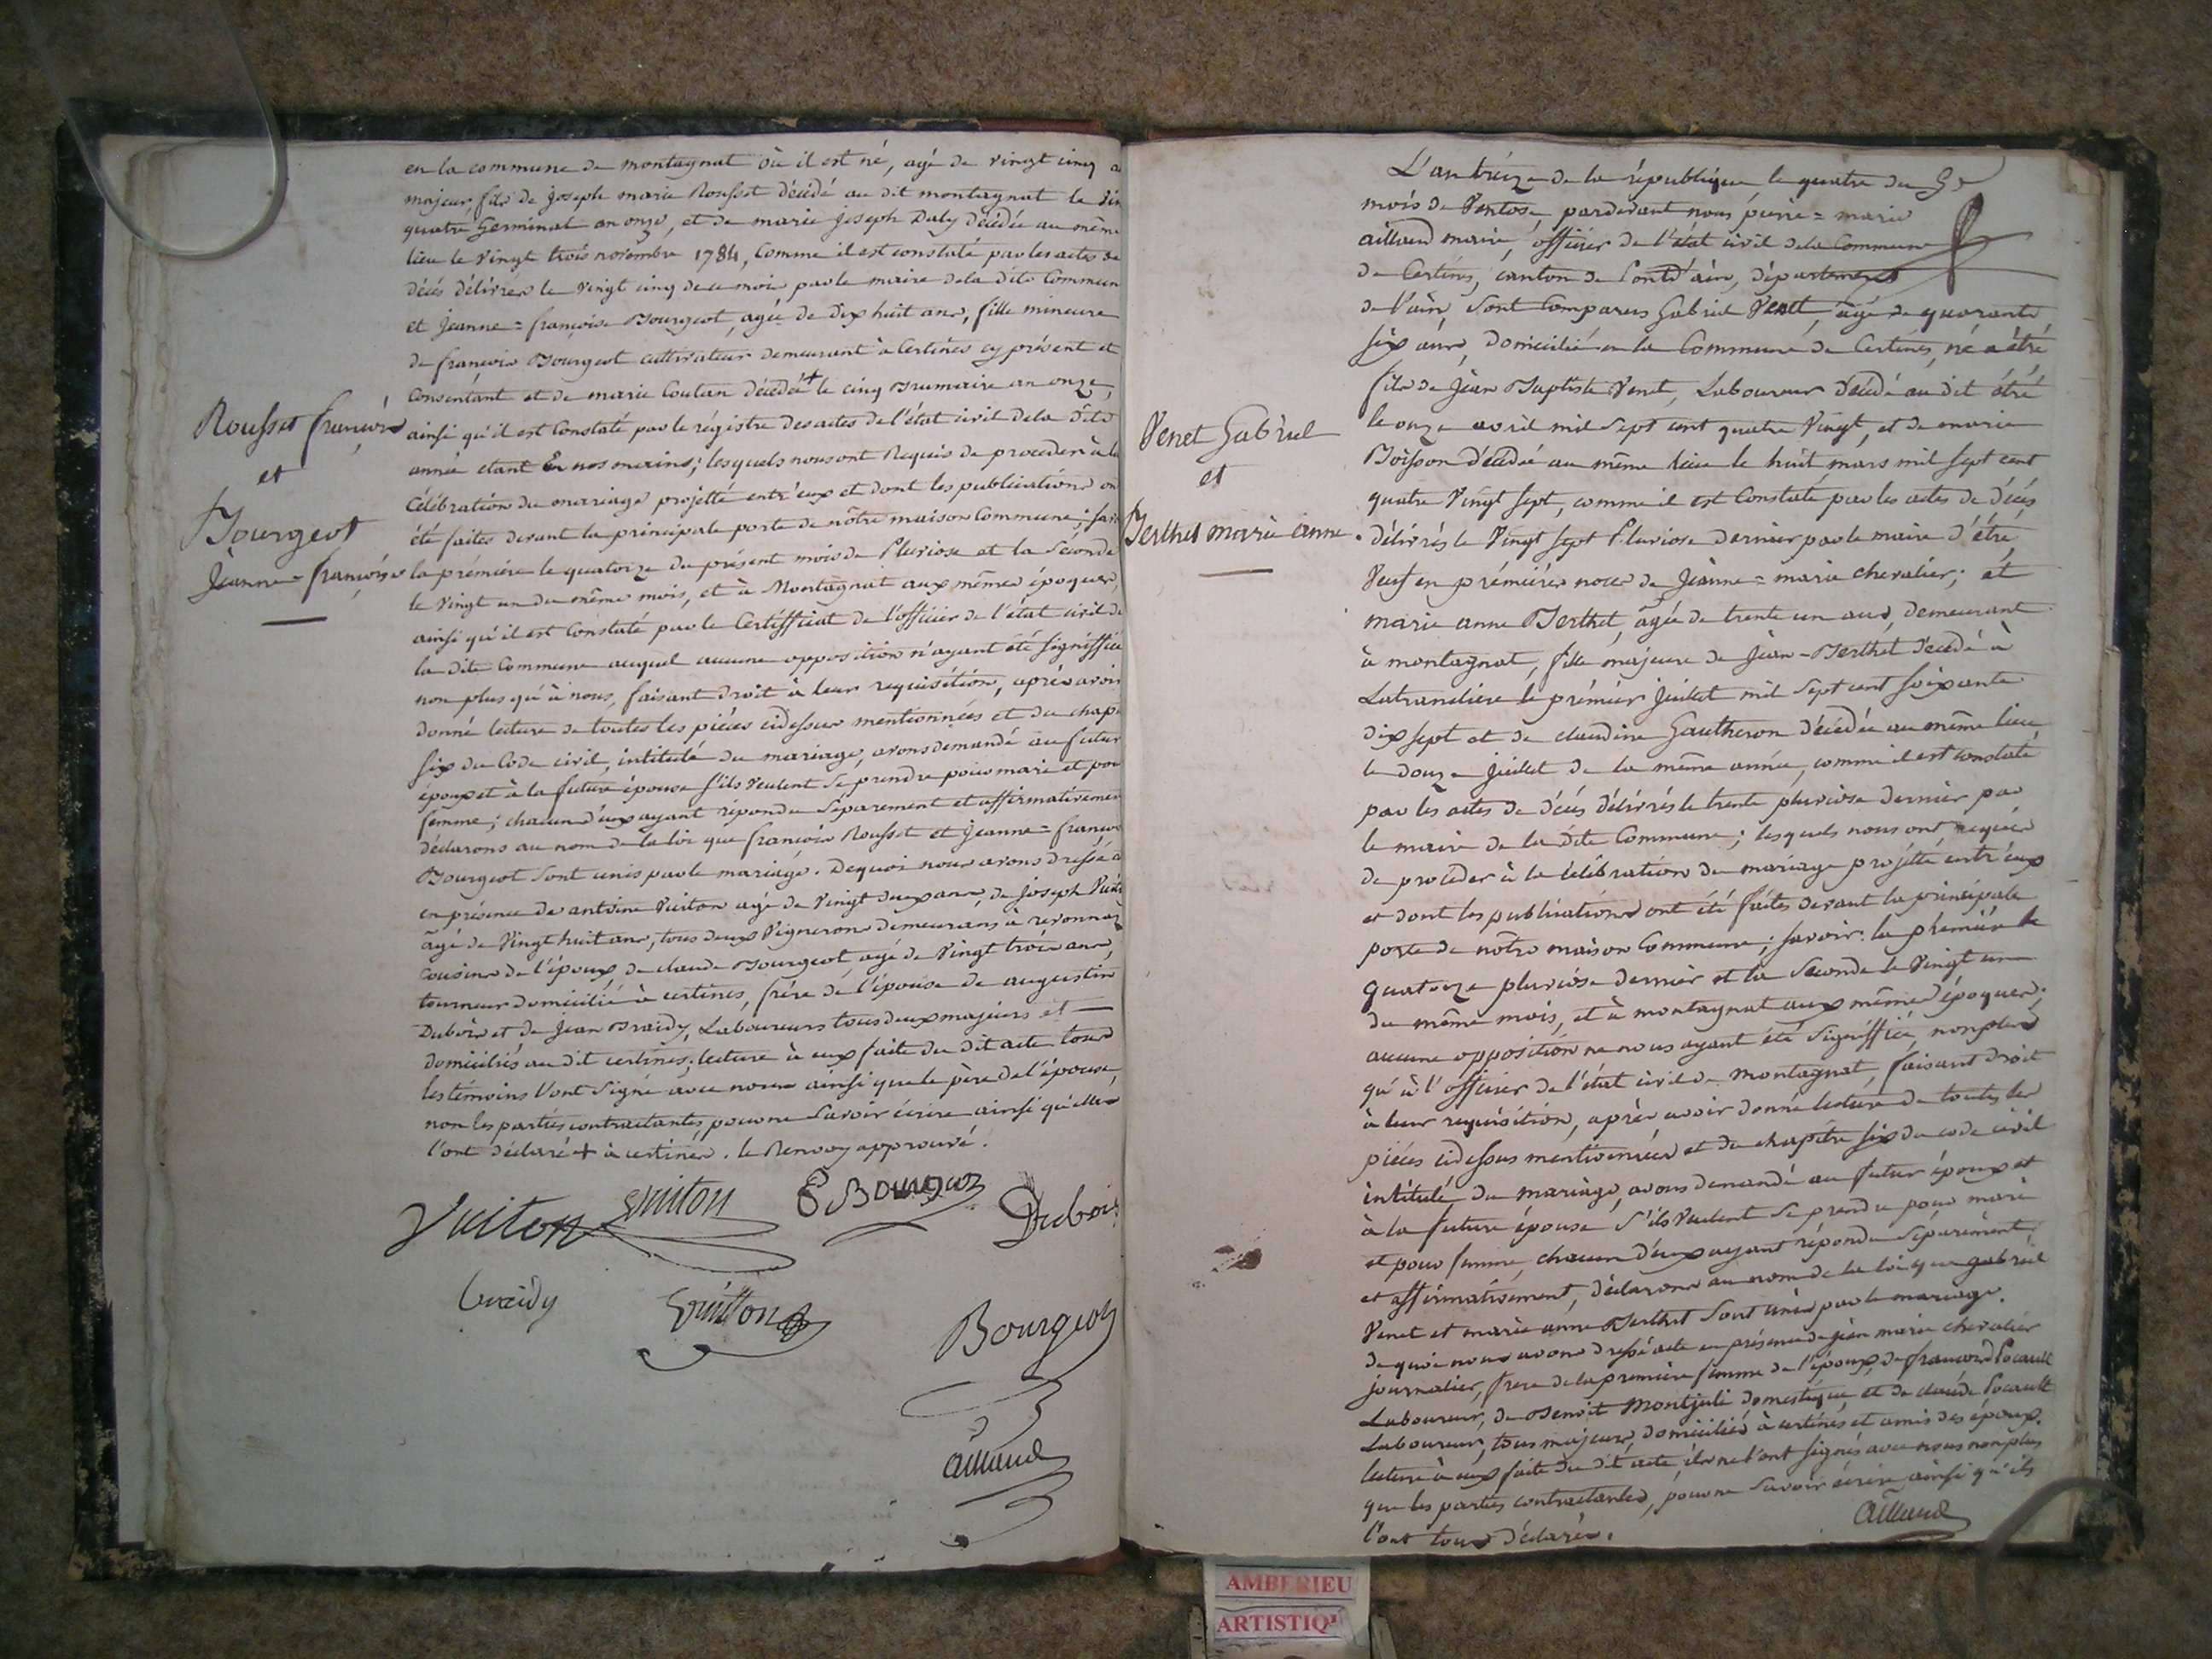 en la commune de montagnat où il est né, agé de vingt cinq
majeur, fils de joseph marie Rousset décédé au dit montagnat le
quatre Germinal an onze, et de marie joseph Daly décédée au même
lieu le vingt trois novembre 1784, comme il est constaté par les actes de
décés délivrés le vingt cinq de ce mois par le maire de la dite Commun
et jeanne = françoise Bourgeot, agée de dix huit ans, fille mineure
de françois Bourgeot cultivateur demeurant à Certines cy présent et
Consentant et de marie Coutan décédée + le cinq Brumaire an onze,
ainsi qu'il est Constaté par le régistre des actes de l'état civil de la dite
année etant En nos mains; lesquels nous ont Requis de proceder à la
Célébration du mariage projetté entr'eux et dont les publications on
été faites devant la principale porte de nôtre maison Commune; sav
la prémiére le quatorze du présent mois de Pluviose et la Séconde
le vingt un du même mois, et à Montagnat aux mêmes époques,
ainsi qu'il est Constaté par le Certifficat de l'officier de l'état civil de
la dite Commune auquel aucune opposition n'ayant été signiffiée
non plus qu'à nous, faisant droit à leur requisition, aprés avoir
donné lecture de toutes les piéces cidessus mentionnées et du chap
six du Code civil, intitulé du mariage, avons demandé au futur
époux et à la future épouse s'ils veulent se prendre pour mari et pou
femme; chacun d'eux ayant répondu séparement et affirmativemen
déclarons au nom de la loi que françois Rousset et jeanne = françoi
Bourgeot sont unis par le mariage. Dequoi nous avons dressé a
en présence de antoine Vuiton agé de vingt deux ans, de joseph
âgé de vingt huit ans, tous deux vignerons demeurans à revonnaz
Cousins de l'époux, de claude Bourgeot agé de vingt trois ans,
tourneur domicilié à certines, frére de l'épouse de augustin
Dubois et de jean Braidy, Laboureurs tous deux majeurs et —
domiciliés au dit certines; lecture à eux faite du dit acte tous
les témoins l'ont signé avec nous ainsi que le père de l'épouse,
non les parties contractantes pour ne savoir écrire ainsi qu'elles
l'ont déclaré + à certines. le Renvoy approuvé.
Rousset françois
et
Bourgeot
jeanne = françoise
Vuiton
Vuiton
Dubois
Braidy
Vuitton
Bourgeot
aillaud
L'an treize de la république le quatre du
mois de Ventose pardevant nous pierre = marie
aillaud maire, officier de l'état civil de la Commune
de Certines, canton de Pontd'ain, département
de l'ain, sont Comparus Gabriel Venet, agé de quarante
six ans, domicilié en la Commune de Certines, né a étré
fils de jean Baptiste Venet, Laboureur décédé au dit étré
le onze avril mil sept cent quatre Vingt, et de marie
Boisson décédée au même lieu le huit mars mil sept cent
quatre Vingt sept, comme il est Constaté par les actes de décés
délivrés le Vingt sept Pluviose dernier par le maire d'étré
Veuf en prémiéres noces de jeanne = marie chevalier; et
marie anne Berthet, agée de trente un ans, demeurant
à montagnat, fille majeure de jean = Berthet décédé à
Latranclière le prémier juillet mil sept cent soixante
dix sept et de claudine Gautheron décédée au même lieu
le douze juillet de la même année, comme il est constaté
par les actes de décés délivrés le trente pluviose dernier par
le maire de la dite Commune; lesquels nous ont requis
de procéder à la célébration du mariage projetté entr'eux
et dont les publications ont été faites devant la principale
porte de nôtre maison Commune; savoir: la prémiére le
quatorze pluviose dernier et la seconde le Vingt un
du même mois, et à montagnat aux mêmes époques;
aucune opposition ne nous ayant été signiffiée, non plus
qu'à l'officier de l'état civil de montagnat, faisant droit
à leur requisition, après avoir donné lecture de toutes les
piéces cidessus mentionnées et du chapitre six du code civil
intitulé du mariage, avons demandé au futur époux et
à la future épouse s'ils Veulent se prendre pour mari
et pour femme, chacun d'eux ayant répondu séparément
et affirmativement, déclarons au nom de la loi que gabriel
Venet et marie anne Berthet sont unis par le mariage.
de quoi nous avons dressé acte en présence de jean marie chevalier
journalier, frere de la premiere femme de l'époux, de francois Pocault
Laboureur, de Benoit Montjuli domestique, et de claude Pocault
Laboureur, tous majeurs, domiciliés à certines et amis des époux.
lecture à eux faite du dit acte, ils ne l'ont signés avec nous non plus
que les parties contractantes, pour ne savoir écrire ainsi qu'ils
l'ont tous déclarés.
aillaud
Venet Gabriel
et
Berthet marie anne.
AMBERIEU
ARTISTIQU